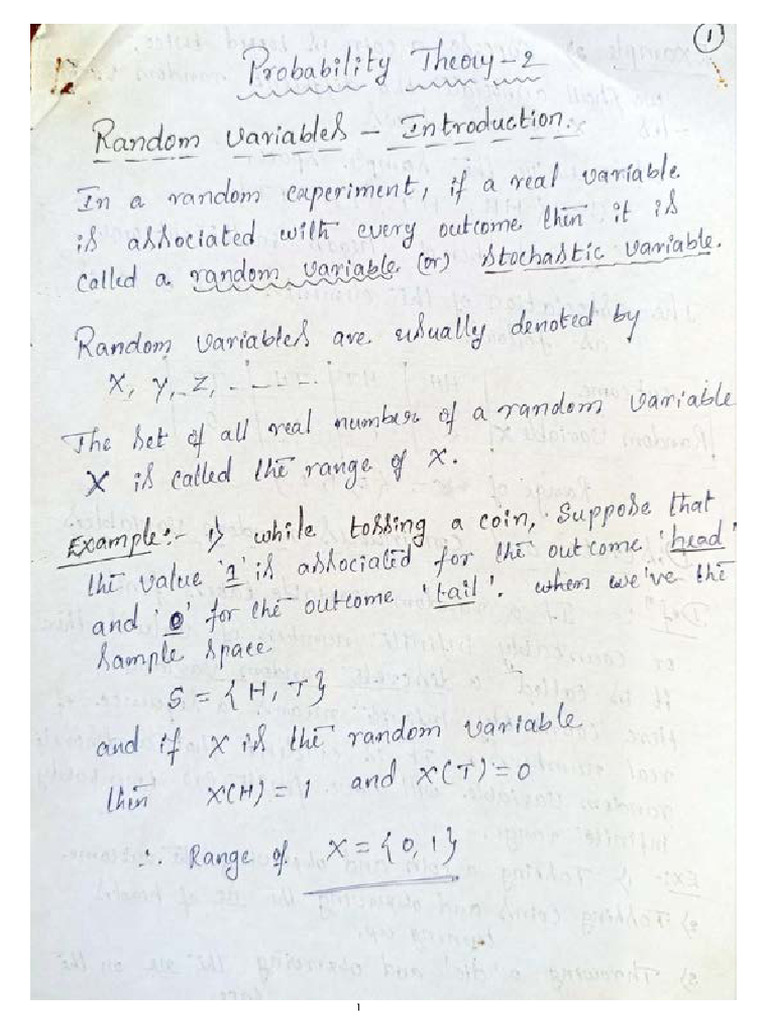 1
Probability Theory-2
Random variables - Introduction.
In a random experiment, if a real variable
is associated with every outcome then it is
called a random variable (or) Stochastic variable.
Random variables are usually denoted by
X, Y, Z, - - - -
The set of all real number of a random variable
X is called the range of X.
Example:- 1) while tossing a coin, Suppose that
the value '1' is associated for the outcome 'head'
and '0' for the outcome 'tail'. when we've the
Sample space
S = {H, T}
and if X is the random variable
then X(H) = 1 and X(T) = 0
∴ Range of X = {0, 1}
1